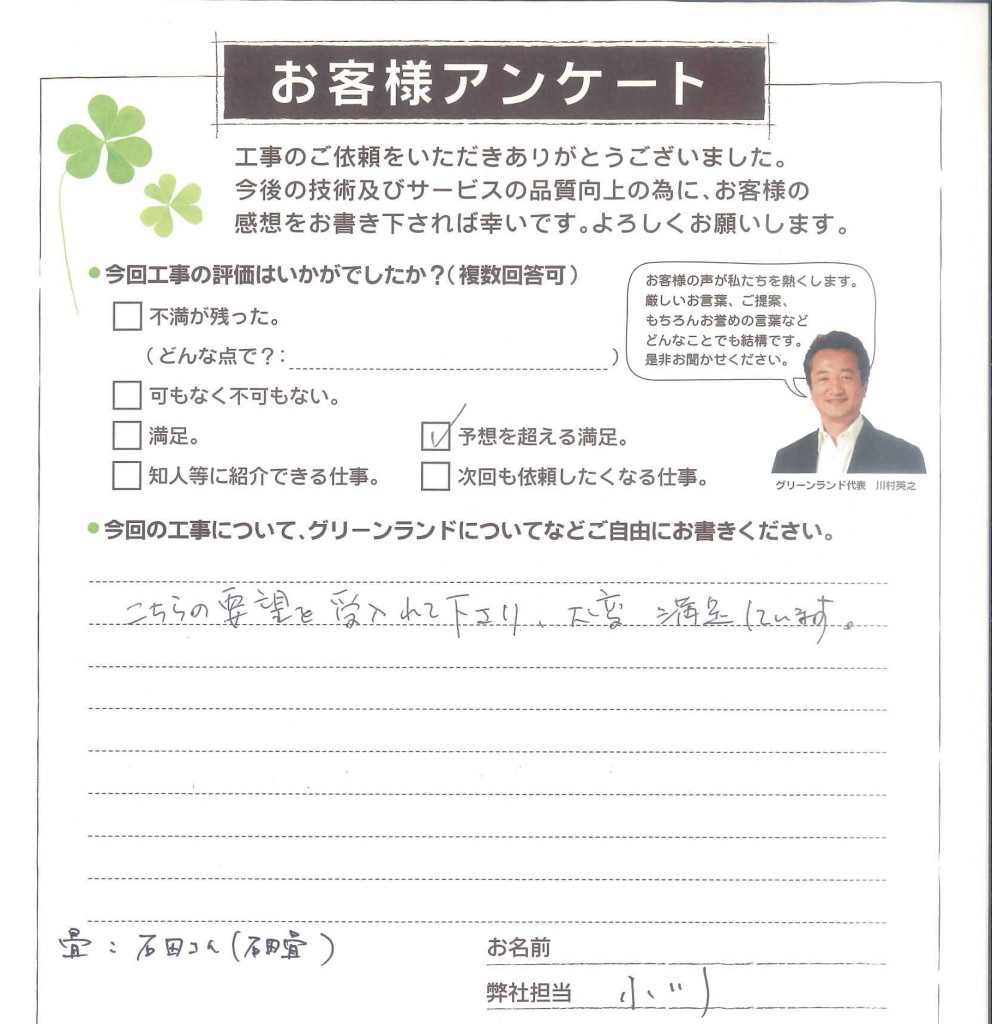 お客様アンケート
工事のご依頼をいただきありがとうございました。
今後の技術及びサービスの品質向上の為に、お客様の
感想をお書き下されば幸いです。よろしくお願いします。
●今回工事の評価はいかがでしたか?(複数回答可)
不満が残った。
(どんな点で?:)
可もなく不可もない。
満足。
予想を超える満足。
知人等に紹介できる仕事。
次回も依頼したくなる仕事。
お客様の声が私たちを熱くします。
厳しいお言葉、ご提案、
もちろんお誉めの言葉など
どんなことでも結構です。
是非お聞かせください。
グリーンランド代表 川村英之
●今回の工事について、グリーンランドについてなどご自由にお書きください。
こちらの要望を受入れて下さり、大変満足しています。
畳:石田さん(石田畳)
お名前
弊社担当